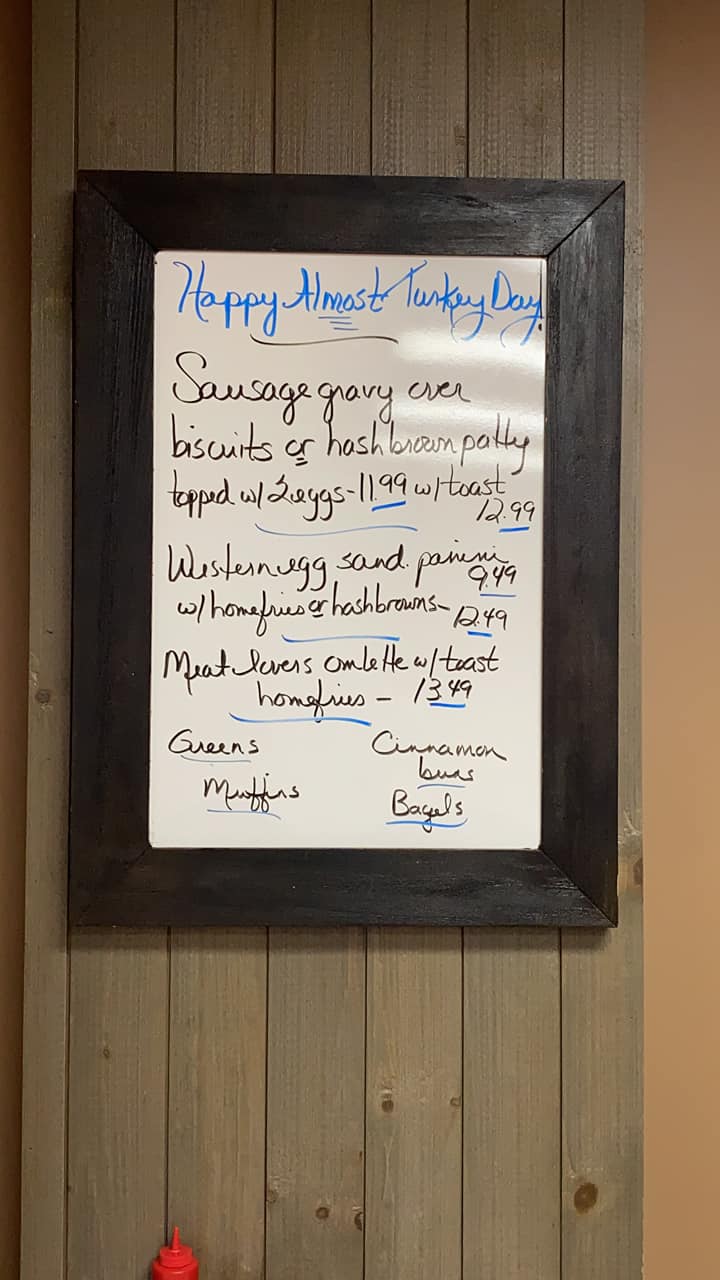 Happy Almost Turkey Day.
Sausage gravy over
biscuits or hashbrown patty
topped w/ 2 eggs - 11.99 w/ toast
12.99
Western egg sand. panini
9.49
w/ homefries or hashbrowns - 12.49
Meat lovers omlette w/ toast
homefries - 13.49
Greens
Cinnamon
buns
Muffins
Bagels